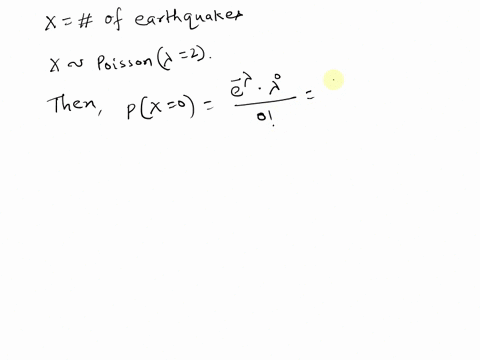 X = # of earthquakes
X ~ Poisson(λ=2).
Then, P(X=0) = e^-λ · λ^0 / 0! =